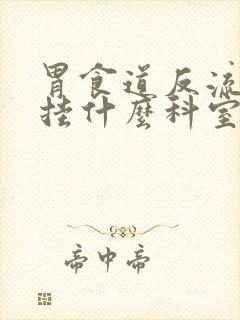 胃食道反流
挂什麼科室
帝中帝